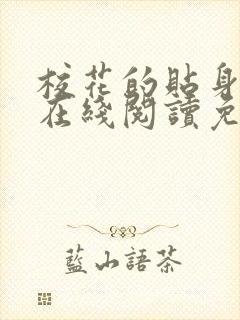 校花的貼身
在綫閱讀免
藍山語茶